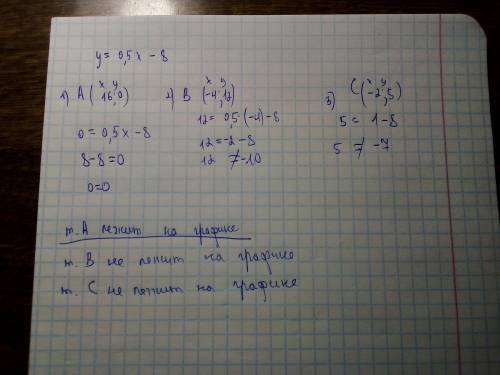 y = 0,5x - 8
x y
1) A (16,0)
0 = 0,5x - 8
8 - 8 = 0
0 = 0
x y
2) B (-4,12)
12 = 0,5·(-4) - 8
12 = -2 - 8
12 ≠ -10
x y
3) C(-2,5)
5 = 1 - 8
5 ≠ -7
т. A лежит на графике
т. B не лежит на графике
т. C не лежит на графике